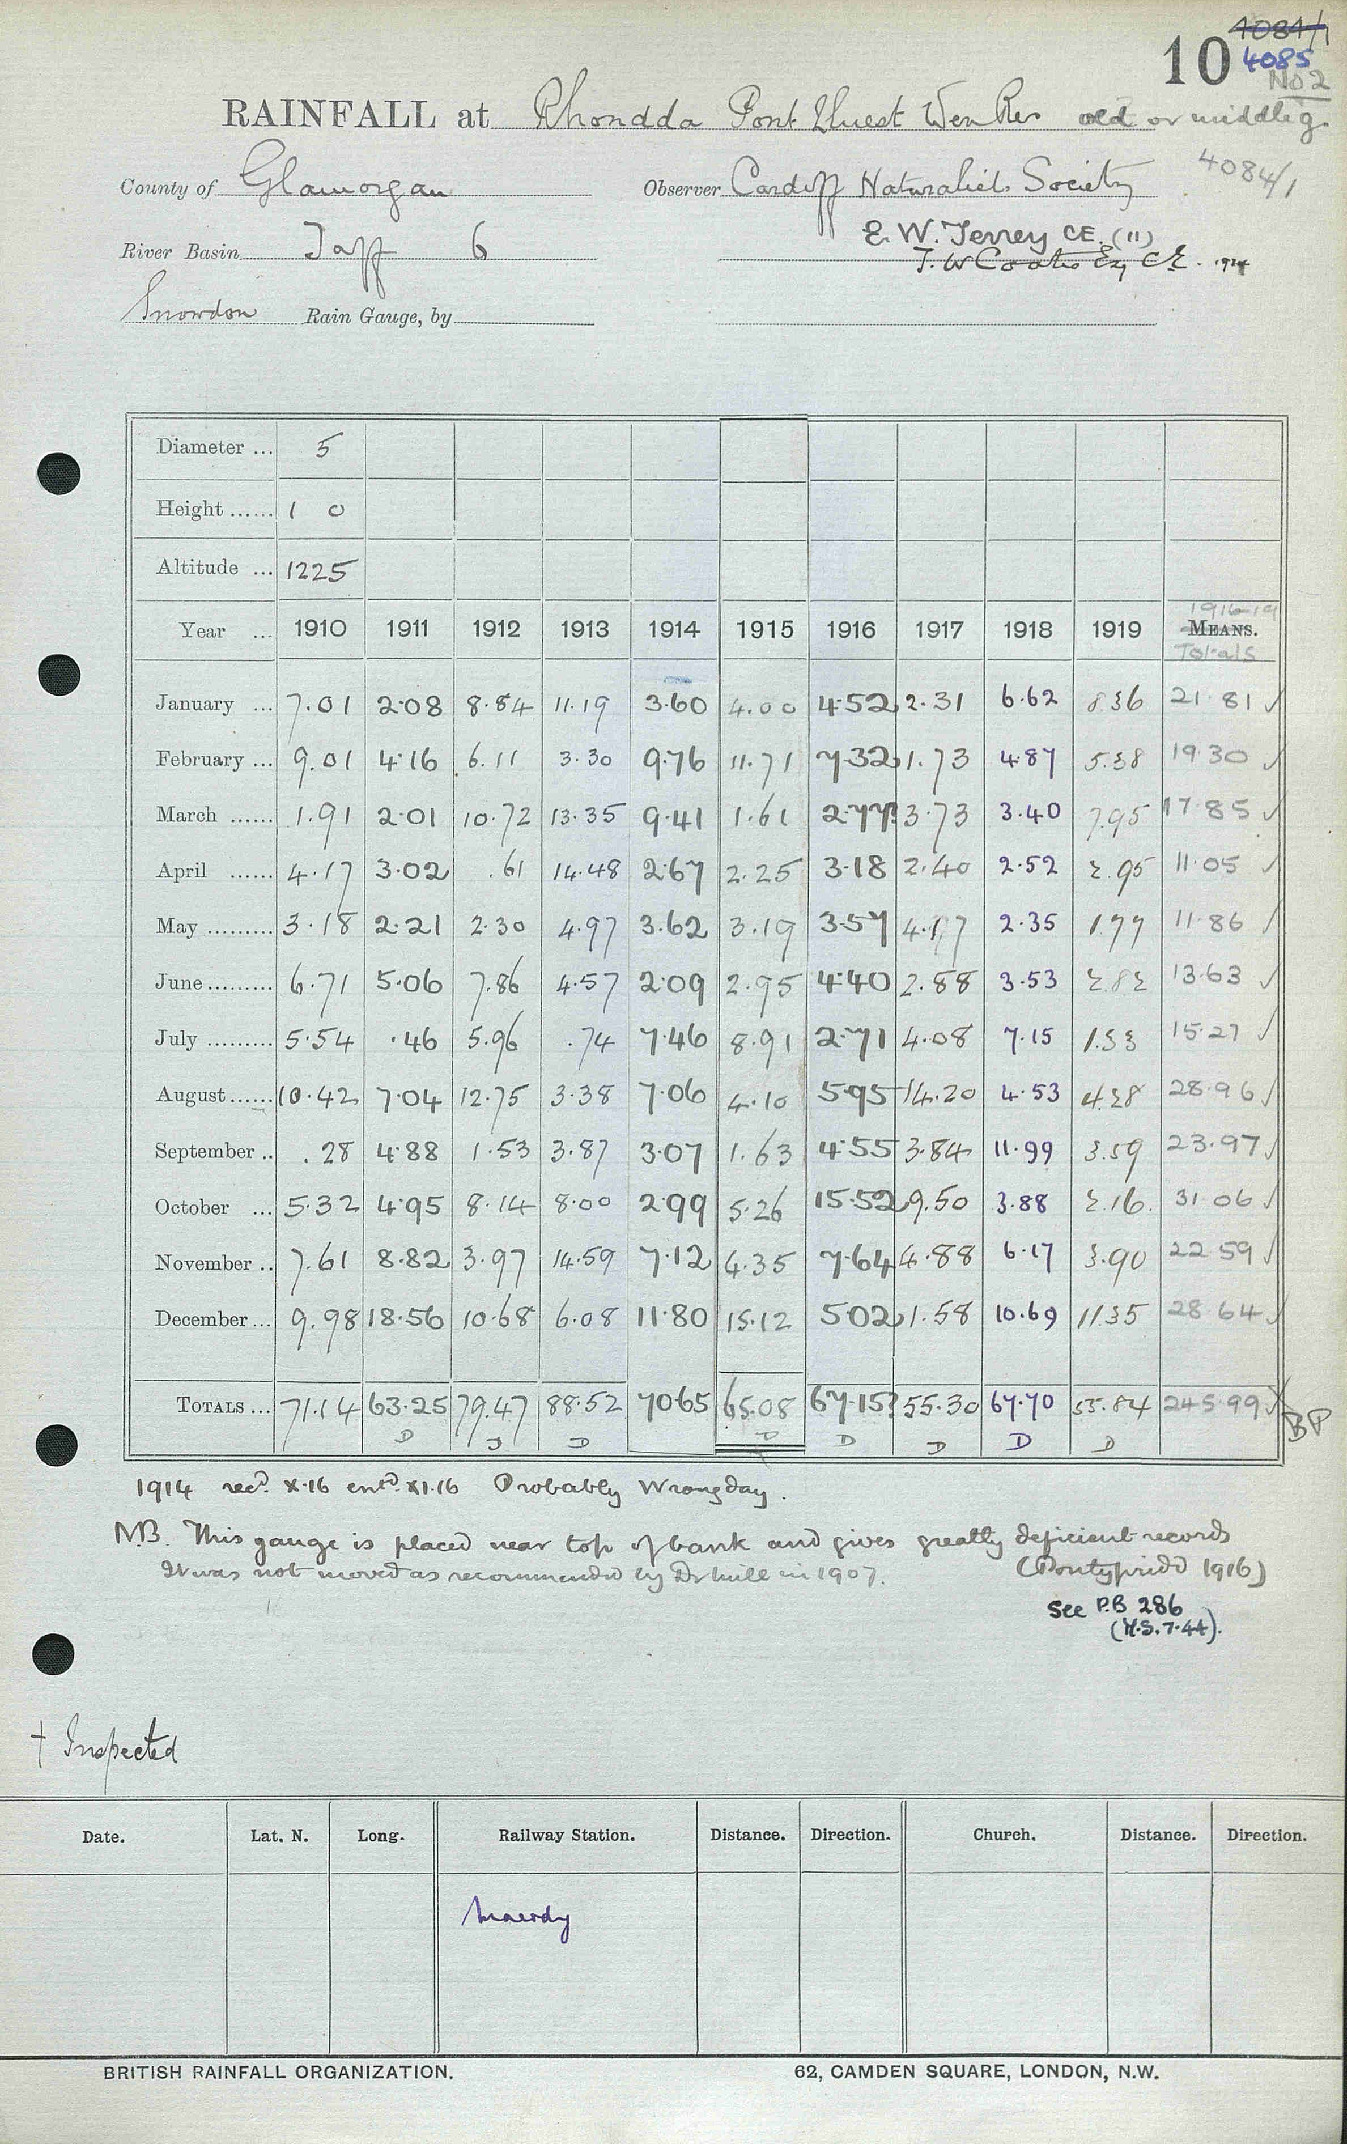 4084/1
10 4085
No 2
RAINFALL at Rhondda Pont Lluest Wen Res old or middle g.
4084/1
County of Glamorgan Observer Cardiff Naturalists Society
E. W. Terrey CE. (11)
River Basin Taff 6
T. W Coates Esq CE. 1914
Snowdon Rain Gauge, by
Diameter ... 5
Height ...... 1 0
Altitude ... 1225
1916-19
Year ... 1910 1911 1912 1913 1914 1915 1916 1917 1918 1919 MEANS.
Totals
January ... 7.01 2.08 8.84 11.19 3.60 4.00 4.52 2.31 6.62 8.36 21.81 ✓
February ... 9.01 4.16 6.11 3.30 9.76 11.71 7.32 1.73 4.87 5.38 19.30 ✓
March ...... 1.91 2.01 10.72 13.35 9.41 1.61 2.77? 3.73 3.40 7.95 17.85 ✓
April ...... 4.17 3.02 .61 14.48 2.67 2.25 3.18 2.40 2.52 2.95 11.05 ✓
May ......... 3.18 2.21 2.30 4.97 3.62 3.19 3.57 4.17 2.35 1.77 11.86 ✓
June ......... 6.71 5.06 7.86 4.57 2.09 2.95 4.40 2.88 3.53 2.82 13.63 ✓
July ......... 5.54 .46 5.96 .74 7.46 8.91 2.71 4.08 7.15 1.33 15.27 ✓
August ...... 10.42 7.04 12.75 3.38 7.06 4.10 5.95 14.20 4.53 4.28 28.96 ✓
September .. .28 4.88 1.53 3.87 3.07 1.63 4.55 3.84 11.99 3.59 23.97 ✓
October ... 5.32 4.95 8.14 8.00 2.99 5.26 15.52 9.50 3.88 2.16 31.06 ✓
November .. 7.61 8.82 3.97 14.59 7.12 4.35 7.64 4.88 6.17 3.90 22.59 ✓
December ... 9.98 18.56 10.68 6.08 11.80 15.12 5.02 1.58 10.69 11.35 28.64 ✓
TOTALS ... 71.14 63.25 79.47 88.52 70.65 65.08 67.15? 55.30 67.70 53.84 245.99 BP
D D D D D D D D
1914 recd. X.16 entd. XI.16 Probably Wrong day.
N.B. This gauge is placed near top of bank and gives greatly deficient records
It was not moved as recommended by Dr Mill in 1907. (Pontypridd 1916)
See P.B 286
(H.S. 7.44).
† Inspected
Date. Lat. N. Long. Railway Station. Distance. Direction. Church. Distance. Direction.
Maerdy
BRITISH RAINFALL ORGANIZATION. 62, CAMDEN SQUARE, LONDON, N.W.